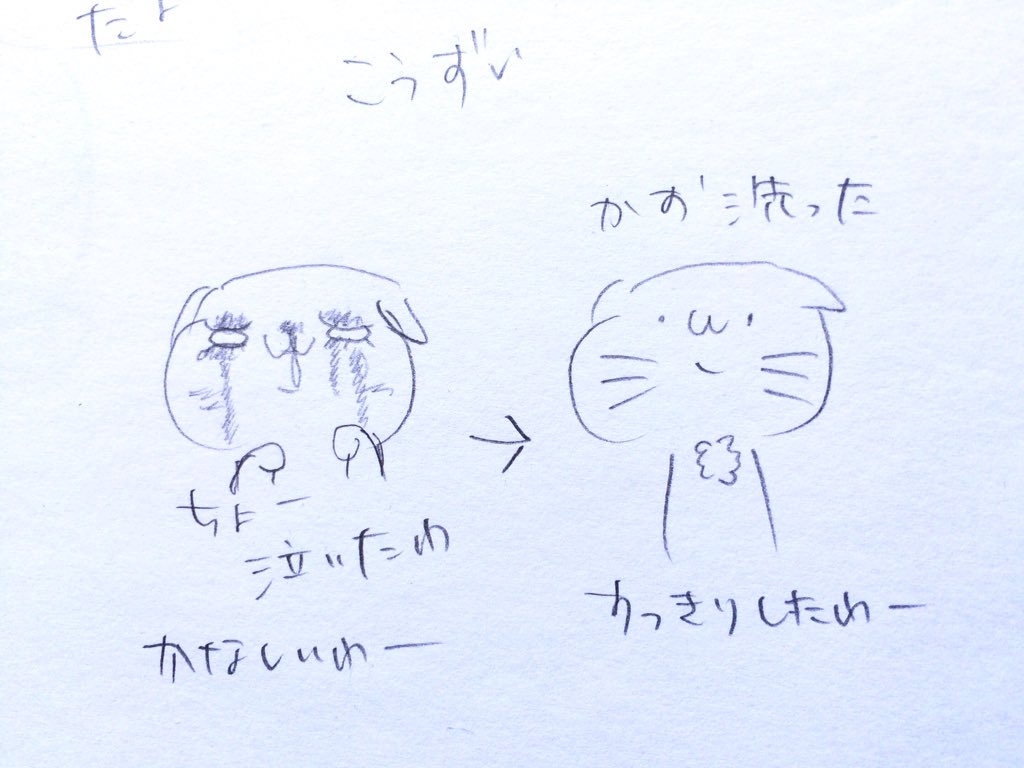 こうずい
ちょー
泣いたわ
かなしいわー
かお洗った
すっきりしたわー